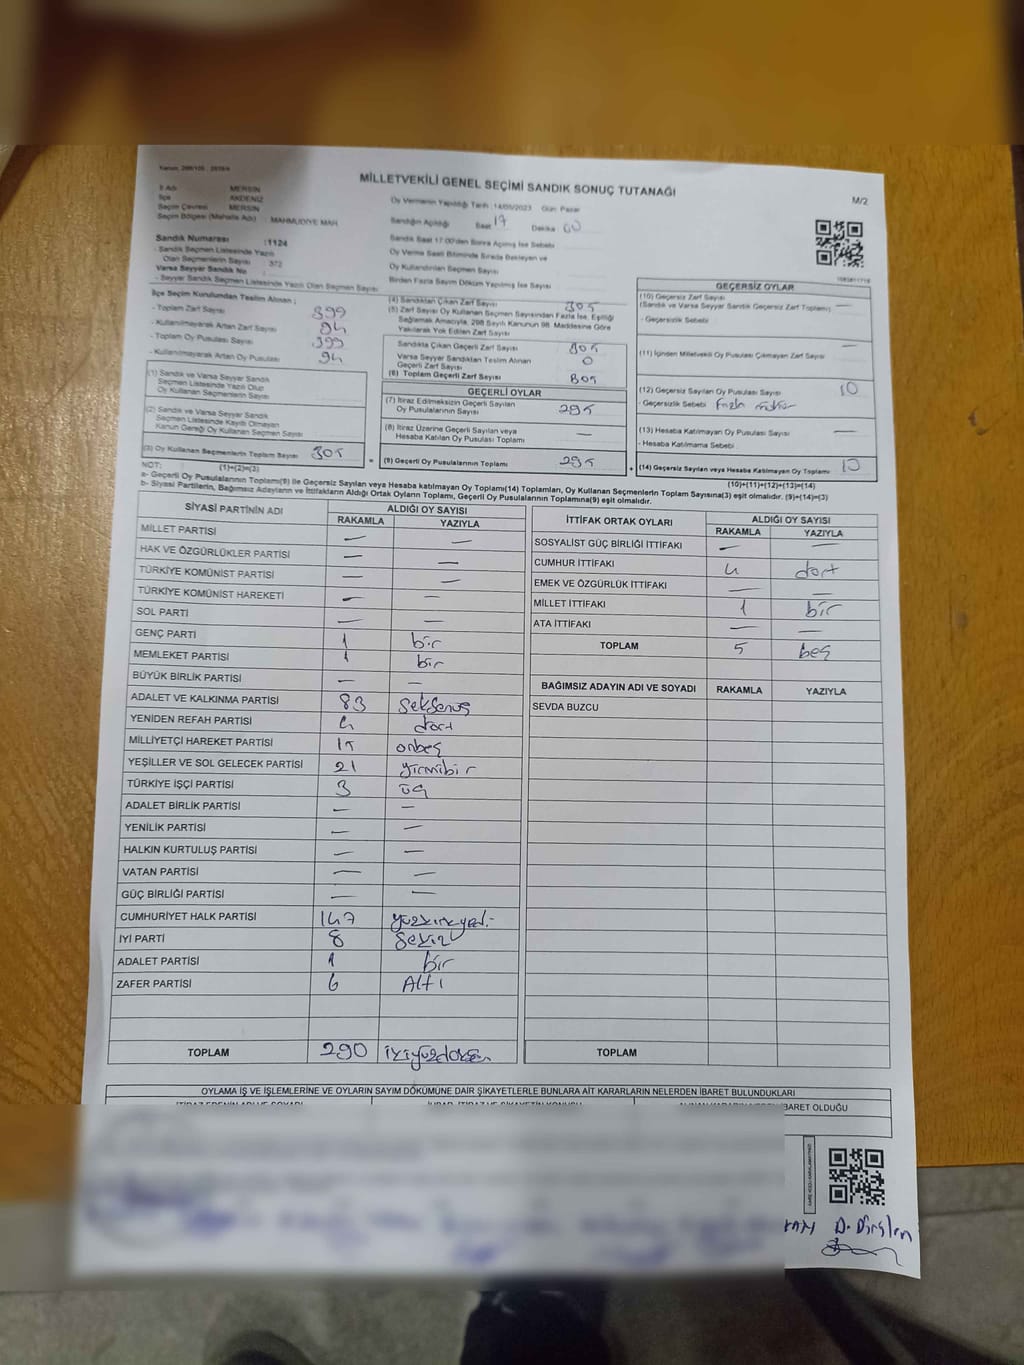 MİLLETVEKİLİ GENEL SEÇİMİ SANDIK SONUÇ TUTANAĞI
M/2
İl Adı MERSİN
İlçe AKDENİZ
Seçim Çevresi MERSİN
Seçim Bölgesi (Mahalle Adı) : MAHMUDİYE MAH.
Oy Vermenin Yapıldığı Tarih :14/05/2023 Gün: Pazar
Sandığın Açıldığı Saat 17 Dakika 00
Sandık Saat 17:00'den Sonra Açılmış İse Sebebi
Oy Verme Saati Bitiminde Sırada Bekleyen ve
Oy Kullandırılan Seçmen Sayısı
Birden Fazla Sayım Döküm Yapılmış İse Sayısı
Sandık Numarası :1124
- Sandık Seçmen Listesinde Yazılı
Olan Seçmenlerin Sayısı : 372
Varsa Seyyar Sandık No
- Seyyar Sandık Seçmen Listesinde Yazılı Olan Seçmen Sayısı
İlçe Seçim Kurulundan Teslim Alınan ;
- Toplam Zarf Sayısı 399
- Kullanılmayarak Artan Zarf Sayısı 94
- Toplam Oy Pusulası Sayısı 399
- Kullanılmayarak Artan Oy Pusulası 94
(1) Sandık ve Varsa Seyyar Sandık
Seçmen Listesinde Yazılı Olup
Oy Kullanan Seçmen Sayısı
(2) Sandık ve Varsa Seyyar Sandık
Seçmen Listesinde Kayıtlı Olmayan
Kanun Gereği Oy Kullanan Seçmen Sayısı
(3) Oy Kullanan Seçmenlerin Toplam Sayısı 305
(1)+(2)=(3)
(4) Sandıktan Çıkan Zarf Sayısı 305
(5) Zarf Sayısı Oy Kullanan Seçmen Sayısından Fazla İse, Eşitliği
Sağlamak Amacıyla, 298 Sayılı Kanunun 98. Maddesine Göre
Yakılarak Yok Edilen Zarf Sayısı
Sandıkta Çıkan Geçerli Zarf Sayısı 305
Varsa Seyyar Sandıktan Teslim Alınan
Geçerli Zarf Sayısı 0
(6) Toplam Geçerli Zarf Sayısı 305
GEÇERLİ OYLAR
(7) İtiraz Edilmeksizin Geçerli Sayılan
Oy Pusulalarının Sayısı 295
(8) İtiraz Üzerine Geçerli Sayılan veya
Hesaba Katılan Oy Pusulası Toplamı —
(9) Geçerli Oy Pusulalarının Toplamı 295
GEÇERSİZ OYLAR
(10) Geçersiz Zarf Sayısı
(Sandık ve Varsa Seyyar Sandık Geçersiz Zarf Toplamı) —
- Geçersizlik Sebebi
(11) İçinden Milletvekili Oy Pusulası Çıkmayan Zarf Sayısı —
(12) Geçersiz Sayılan Oy Pusulası Sayısı 10
- Geçersizlik Sebebi Fazla mühür
(13) Hesaba Katılmayan Oy Pusulası Sayısı —
- Hesaba Katılmama Sebebi
(14) Geçersiz Sayılan veya Hesaba Katılmayan Oy Toplamı 10
(10)+(11)+(12)+(13)=(14)
NOT:
a- Geçerli Oy Pusulalarının Toplamı(9) ile Geçersiz Sayılan veya Hesaba Katılmayan Oy Toplamı(14) Toplamları, Oy Kullanan Seçmenlerin Toplam Sayısına(3) eşit olmalıdır. (9)+(14)=(3)
b- Siyasi Partilerin, Bağımsız Adayların ve İttifakların Aldığı Ortak Oyların Toplamı, Geçerli Oy Pusulalarının Toplamına(9) eşit olmalıdır.
SİYASİ PARTİNİN ADI ALDIĞI OY SAYISI
RAKAMLA YAZIYLA
MİLLET PARTİSİ — —
HAK VE ÖZGÜRLÜKLER PARTİSİ — —
TÜRKİYE KOMÜNİST PARTİSİ — —
TÜRKİYE KOMÜNİST HAREKETİ — —
SOL PARTİ — —
GENÇ PARTİ 1 bir
MEMLEKET PARTİSİ 1 bir
BÜYÜK BİRLİK PARTİSİ — —
ADALET VE KALKINMA PARTİSİ 83 seksenüç
YENİDEN REFAH PARTİSİ 4 dört
MİLLİYETÇİ HAREKET PARTİSİ 15 onbeş
YEŞİLLER VE SOL GELECEK PARTİSİ 21 yirmibir
TÜRKİYE İŞÇİ PARTİSİ 3 üç
ADALET BİRLİK PARTİSİ — —
YENİLİK PARTİSİ — —
HALKIN KURTULUŞ PARTİSİ — —
VATAN PARTİSİ — —
GÜÇ BİRLİĞİ PARTİSİ — —
CUMHURİYET HALK PARTİSİ 147 yüzkırkyedi
İYİ PARTİ 8 sekiz
ADALET PARTİSİ 1 bir
ZAFER PARTİSİ 6 Altı
TOPLAM 290 ikiyüzdoksan
İTTİFAK ORTAK OYLARI ALDIĞI OY SAYISI
RAKAMLA YAZIYLA
SOSYALİST GÜÇ BİRLİĞİ İTTİFAKI — —
CUMHUR İTTİFAKI 4 dört
EMEK VE ÖZGÜRLÜK İTTİFAKI — —
MİLLET İTTİFAKI 1 bir
ATA İTTİFAKI — —
TOPLAM 5 beş
BAĞIMSIZ ADAYIN ADI VE SOYADI RAKAMLA YAZIYLA
SEVDA BUZCU
TOPLAM
OYLAMA İŞ VE İŞLEMLERİNE VE OYLARIN SAYIM DÖKÜMÜNE DAİR ŞİKAYETLERLE BUNLARA AİT KARARLARIN NELERDEN İBARET BULUNDUKLARI